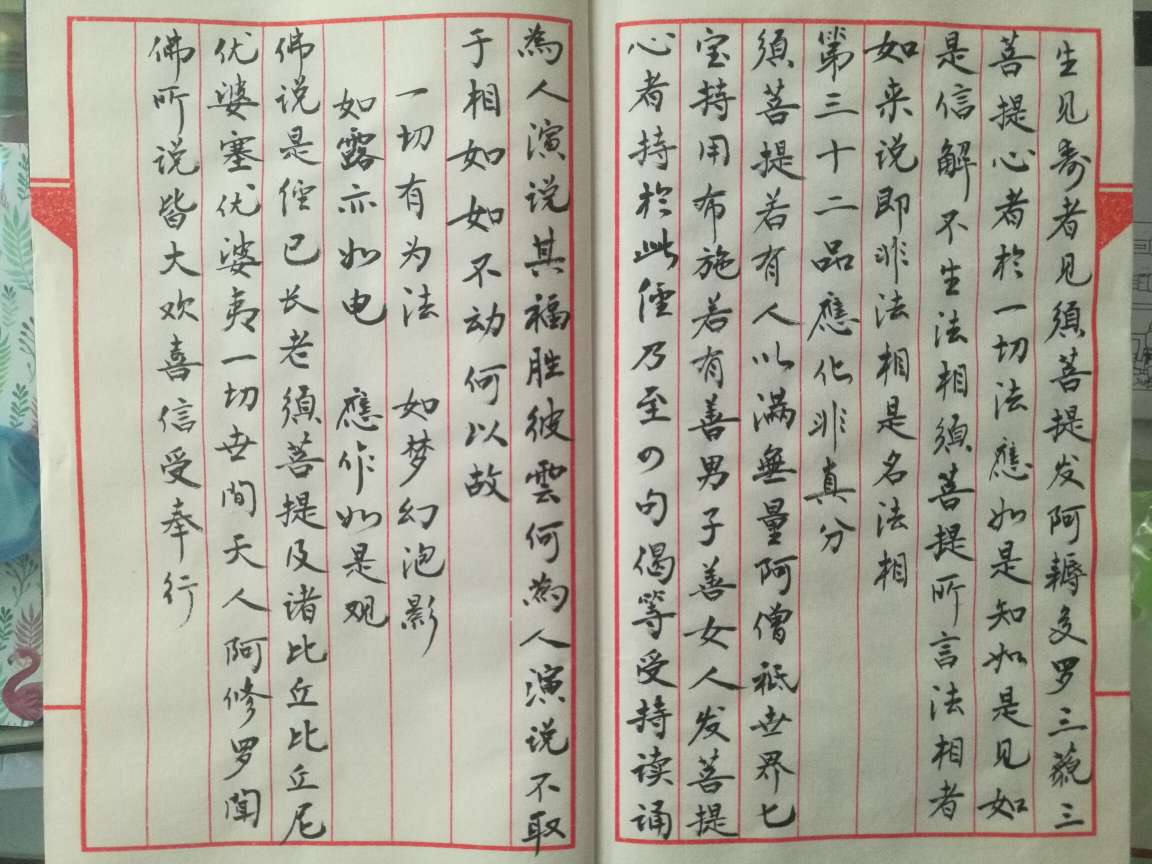 生见寿者见須菩提发阿耨多罗三藐三
菩提心者於一切法應如是知如是见如
是信解不生法相須菩提所言法相者
如来说即非法相是名法相
第三十二品應化非真分
須菩提若有人以满無量阿僧祇世界七
宝持用布施若有善男子善女人发菩提
心者持於此經乃至四句偈等受持读诵
為人演说其福胜彼雲何為人演说不取
于相如如不动何以故
一切有为法 如梦幻泡影
如露亦如电 應作如是观
佛说是經已长老須菩提及诸比丘比丘尼
优婆塞优婆夷一切世间天人阿修罗闻
佛所说皆大欢喜信受奉行